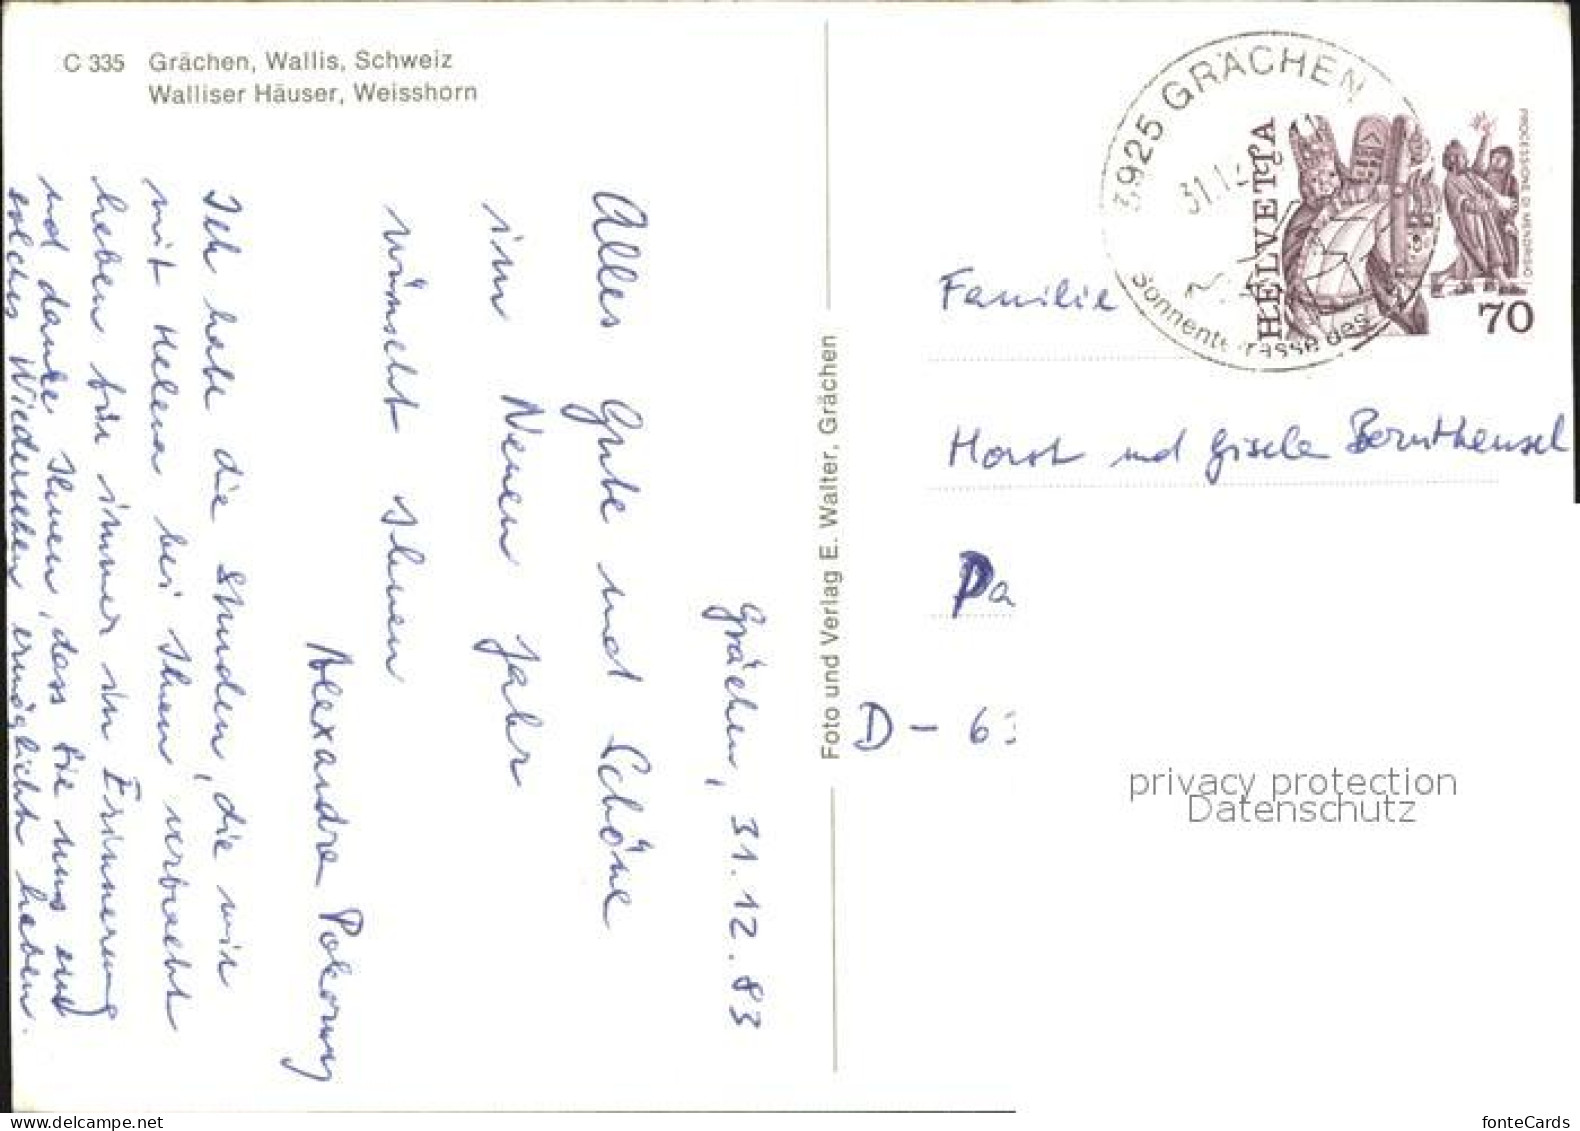 C 335 Grächen, Wallis, Schweiz
Walliser Häuser, Weisshorn
Grächen, 31.12.83
Alles Gute und Schöne
im Neuen Jahr
wünscht Ihnen
Alexandra Pokorny
Ich habe die Stunden, die wir
mit Helena bei Ihnen verbracht
haben für immer in Erinnerung
und danke Ihnen, dass Sie uns ein
solches Wiedersehen ermöglicht haben.
Foto und Verlag E. Walter, Grächen
3925 GRÄCHEN
31.12
Sonnenterrasse des
HELVETIA
PROCESSIONE DI MENDRISIO
70
Familie
Horst und Gisela Berntheusel
Pa
D - 63
privacy protection
Datenschutz
fonteCards